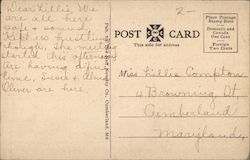 Dear Lillie, We
are all here
safe & sound.
Ralph is hustling
though, the meeting
started this afternoon
is having a fine
time,
Oliver are here.
POST CARD
This side for address
Place Postage
Stamp Here
Domestic and
Canada
One Cent
Foreign
Two Cents
2-
Miss Lillie Compton
4 Browning St
Cumberland
Maryland.
Cumberland, Md.